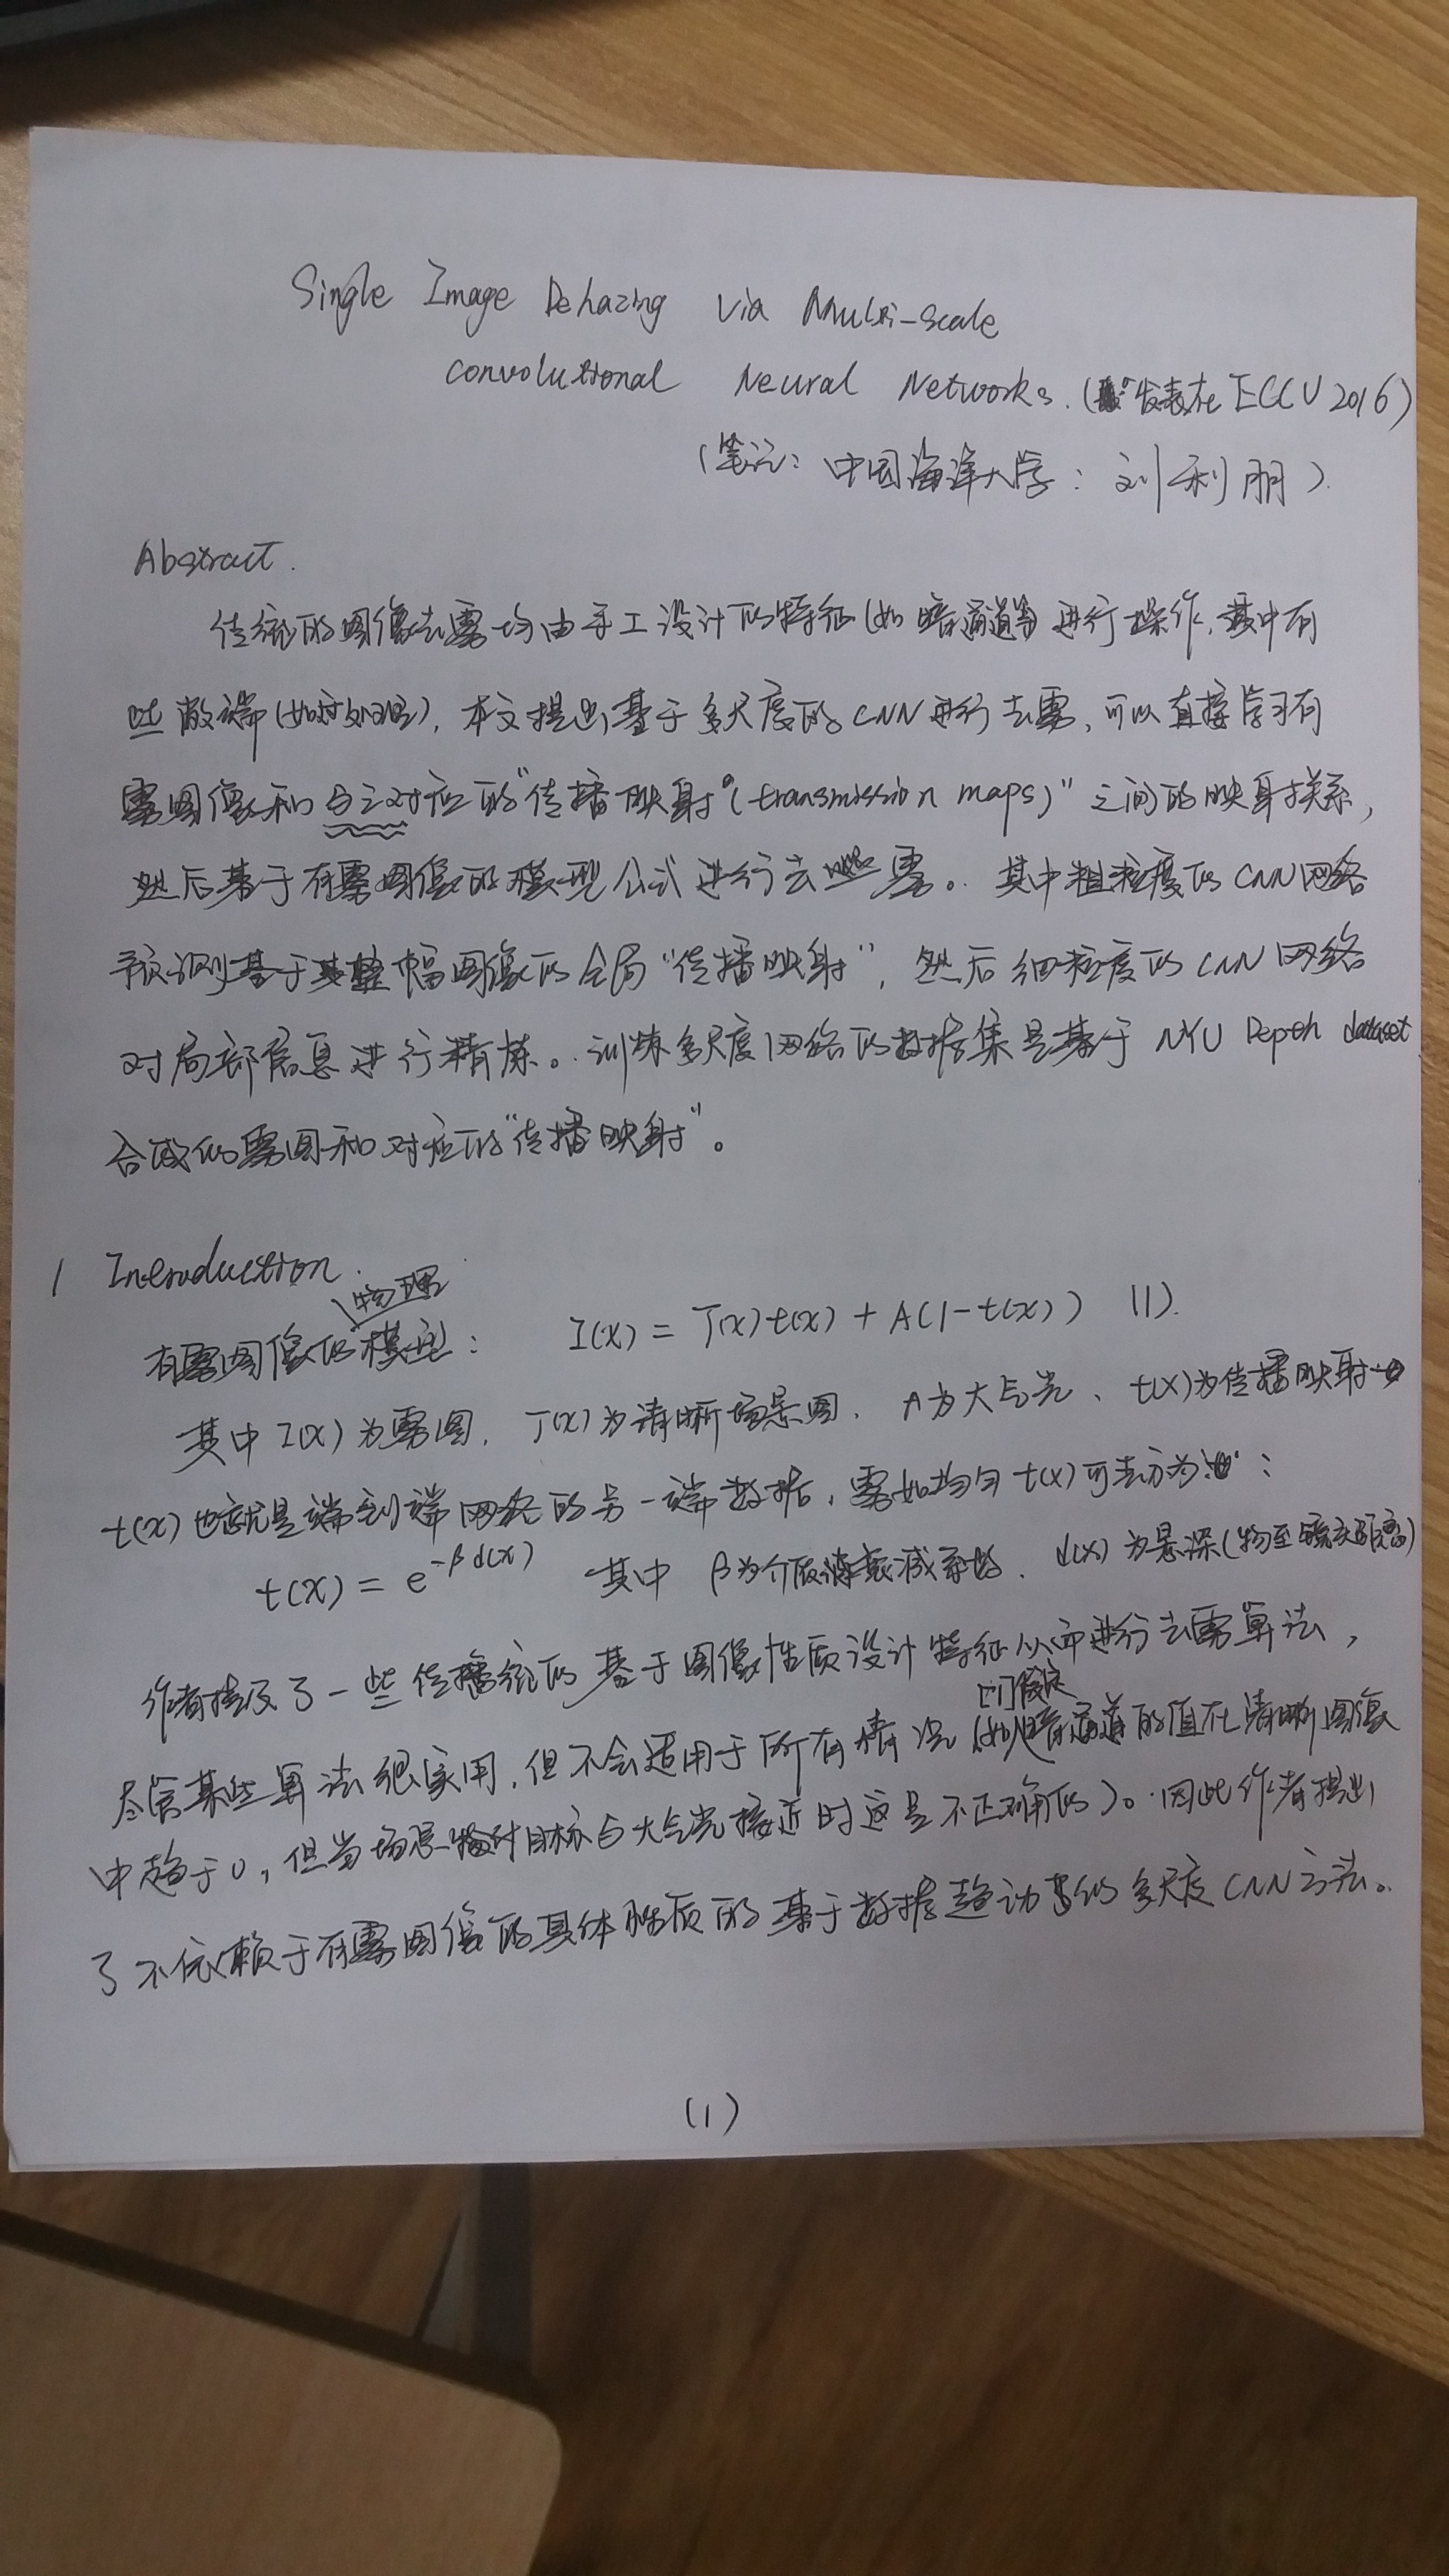 Single Image Dehazing via Multi-scale
convolutional Neural Networks. (发表在 ECCV 2016)
(笔记: 中国海洋大学: 刘利朋)
Abstract.
传统的图像去雾均由手工设计的特征(如暗通道等)进行操作,其中有
些敝端(如过处理),本文提出基于多尺度的CNN进行去雾,可以直接学习有
雾图像和与之对应的"传播映射"(transmission maps)"之间的映射关系,
然后基于有雾图像的模型公式进行去雾。其中粗粒度的CNN网络
预测基于整幅图像的全局"传播映射",然后细粒度的CNN网络
对局部信息进行精炼。训练多尺度网络的数据集是基于 NYU Depth dataset
合成的雾图和对应的"传播映射"。
1 Introduction.
有雾图像的物理模型: I(x) = J(x)t(x) + A(1-t(x)) (1).
其中I(x)为雾图,J(x)为清晰场景图,A为大气光、t(x)为传播映射
t(x)也就是端到端网络的另一端数据,雾如均匀t(x)可表示为:
t(x) = e^{-βd(x)} 其中 β为介质衰减系数、d(x)为景深(物至镜头距离)
作者提及了一些传统的基于图像性质设计特征从而进行去雾算法,
尽管某些算法很实用,但不会适用于所有情况(如假定暗通道的值在清晰图像
中趋于0,但当场景目标与大气光接近时这是不正确的)。因此作者提出
了不依赖于有雾图像的具体性质的基于数据趋动的多尺度CNN方法。
(1)